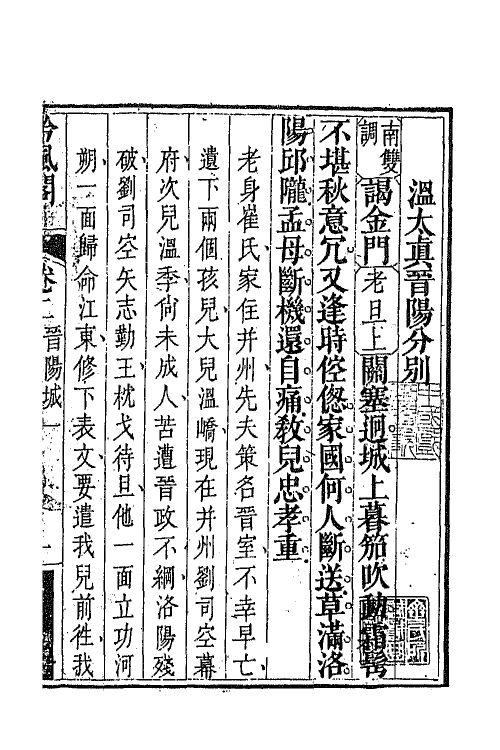 溫太真晉陽分別
南雙調 謁金門 老旦上 關塞迥。城上暮笳吹動霜髩
不堪秋意冗。又逢時倥偬。家國何人斷送。草滿洛
陽邱隴。孟母斷機還自痛。敎兒忠孝重
老身崔氏、家住幷州、先夫策名晉室、不幸早亡、
遺下兩個孩兒、大兒溫嶠、現在幷州劉司空幕
府、次兒溫季、尙未成人、苦遭晉政不綱、洛陽殘
破、劉司空矢志勤王、枕戈待旦、他一面立功河
朔、一面歸命江東、修下表文、要遣我兒前徃、我
吟風閣 卷二 晉陽城 一